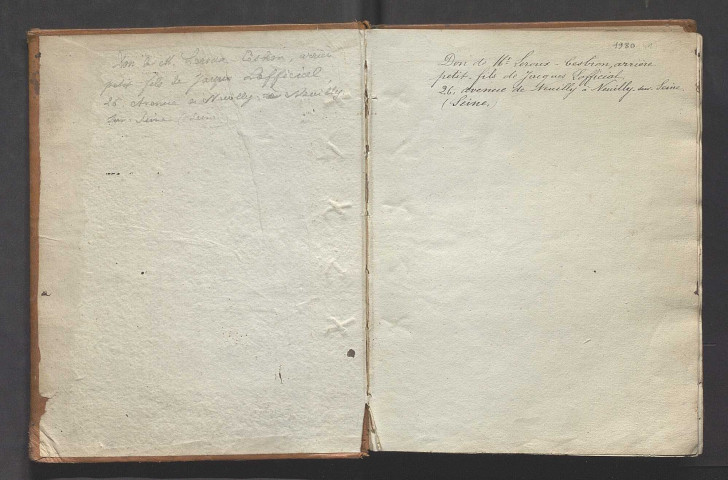 Don de M. Leroux Cesbron, arrière
petit fils de Jacques Lofficial
26 Avenue de Neuilly à Neuilly
sur Seine (Seine)
1980
Don de Mr Leroux-Cesbron, arrière
petit-fils de Jacques Lofficial,
26, avenue de Neuilly à Neuilly-sur-Seine
(Seine)